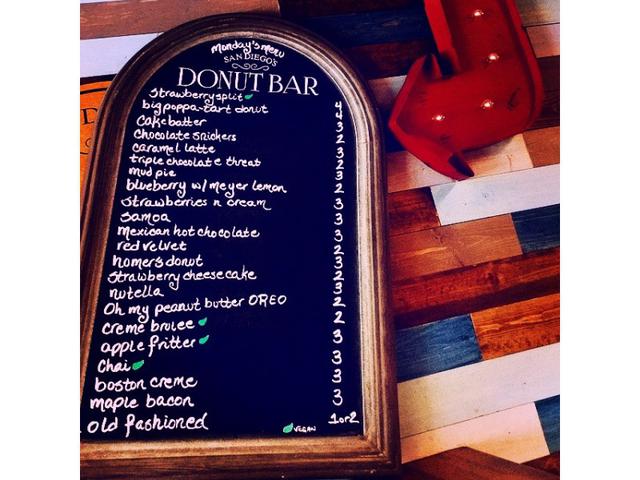 Monday's menu
SAN DIEGO'S
DONUT BAR
Strawberry split 4
big poppa-tart donut 4
Cake batter 3
Chocolate snickers 2
caramel latte 3
triple chocolate threat 2
mud pie 3
blueberry w/ meyer lemon 2
strawberries n cream 3
samoa 3
mexican hot chocolate 3
red velvet 2
homers donut 3
strawberry cheesecake 2
nutella 3
Oh my peanut butter OREO 2
creme brulee 2
apple fritter 3
Chai 3
boston creme 3
maple bacon 3
old fashioned 1or2
VEGAN